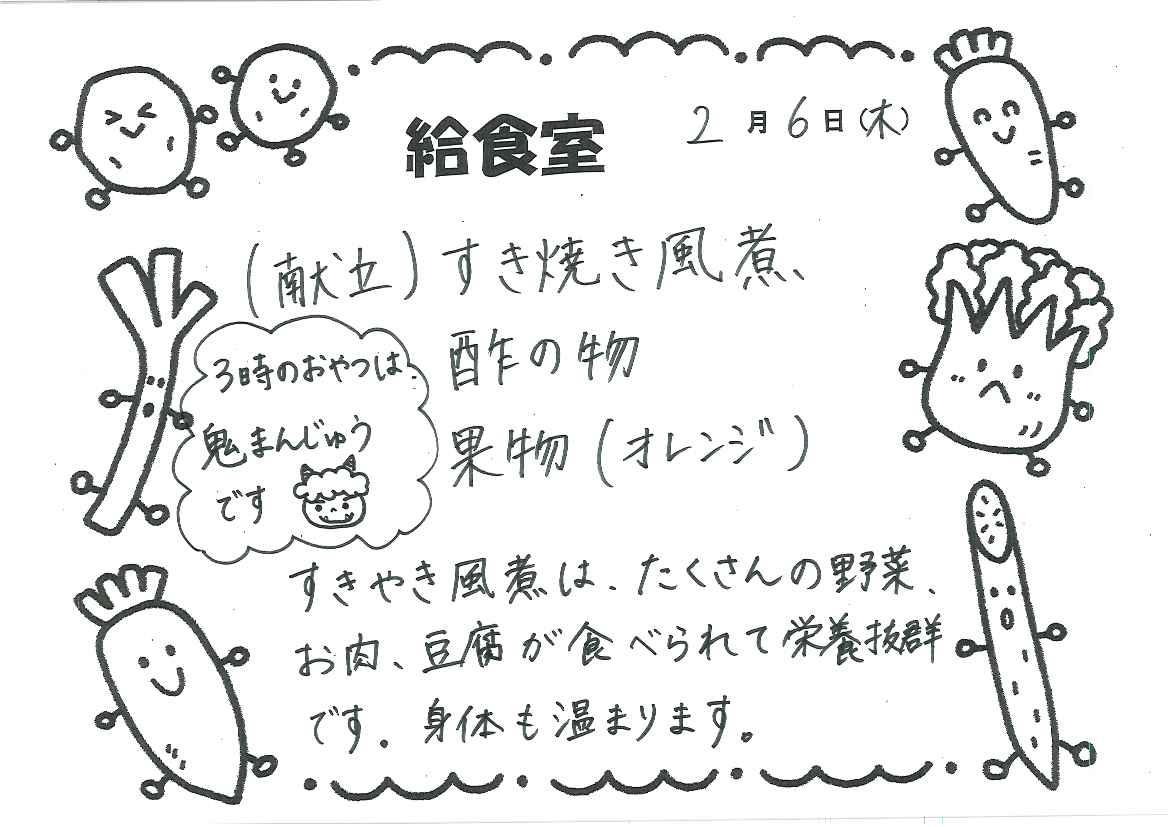 給食室
2月6日(木)
(献立)すき焼き風煮、
酢の物
果物(オレンジ)
3時のおやつは
鬼まんじゅう
です
すきやき風煮は、たくさんの野菜、
お肉、豆腐が食べられて栄養抜群
です。身体も温まります。